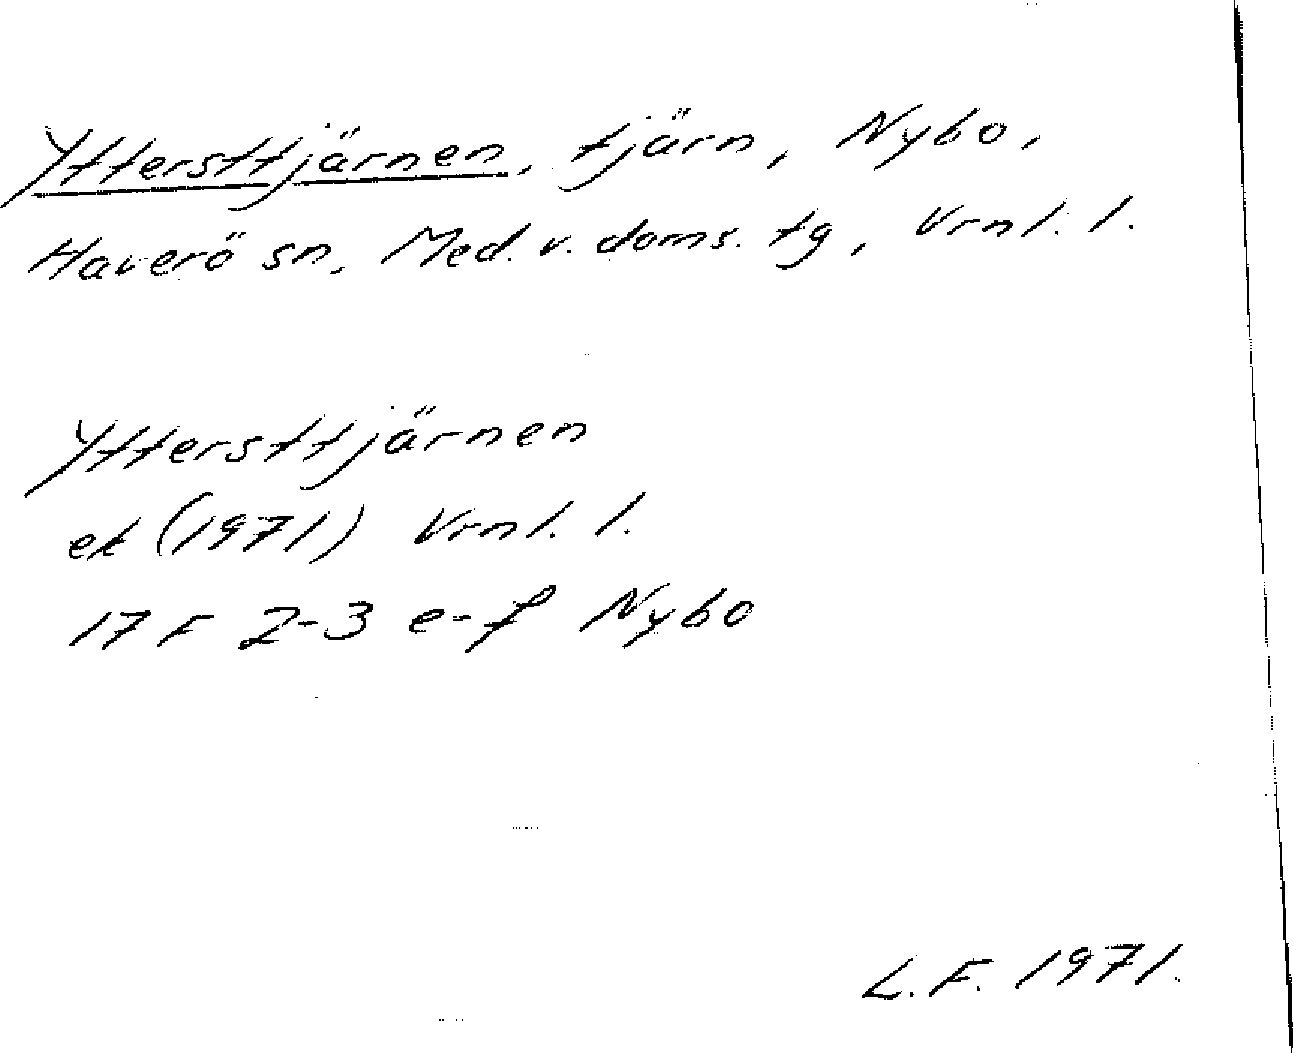 Yttersttjärnen, tjärn, Nybo,
Haverö sn, Med. v. doms. tg, Vrnl. l.
Yttersttjärnen
ek (1971) Vrnl. l.
17 F 2-3 e-f Nybo
L. F. 1971.